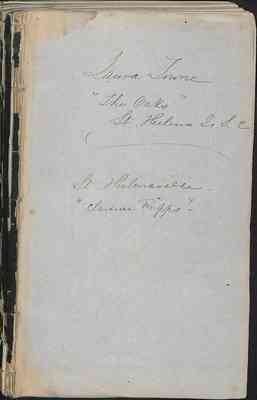 Laura Towne
"The Oaks"
St. Helena Is S. C
St Helenaville.
"Clarence Fripps"-